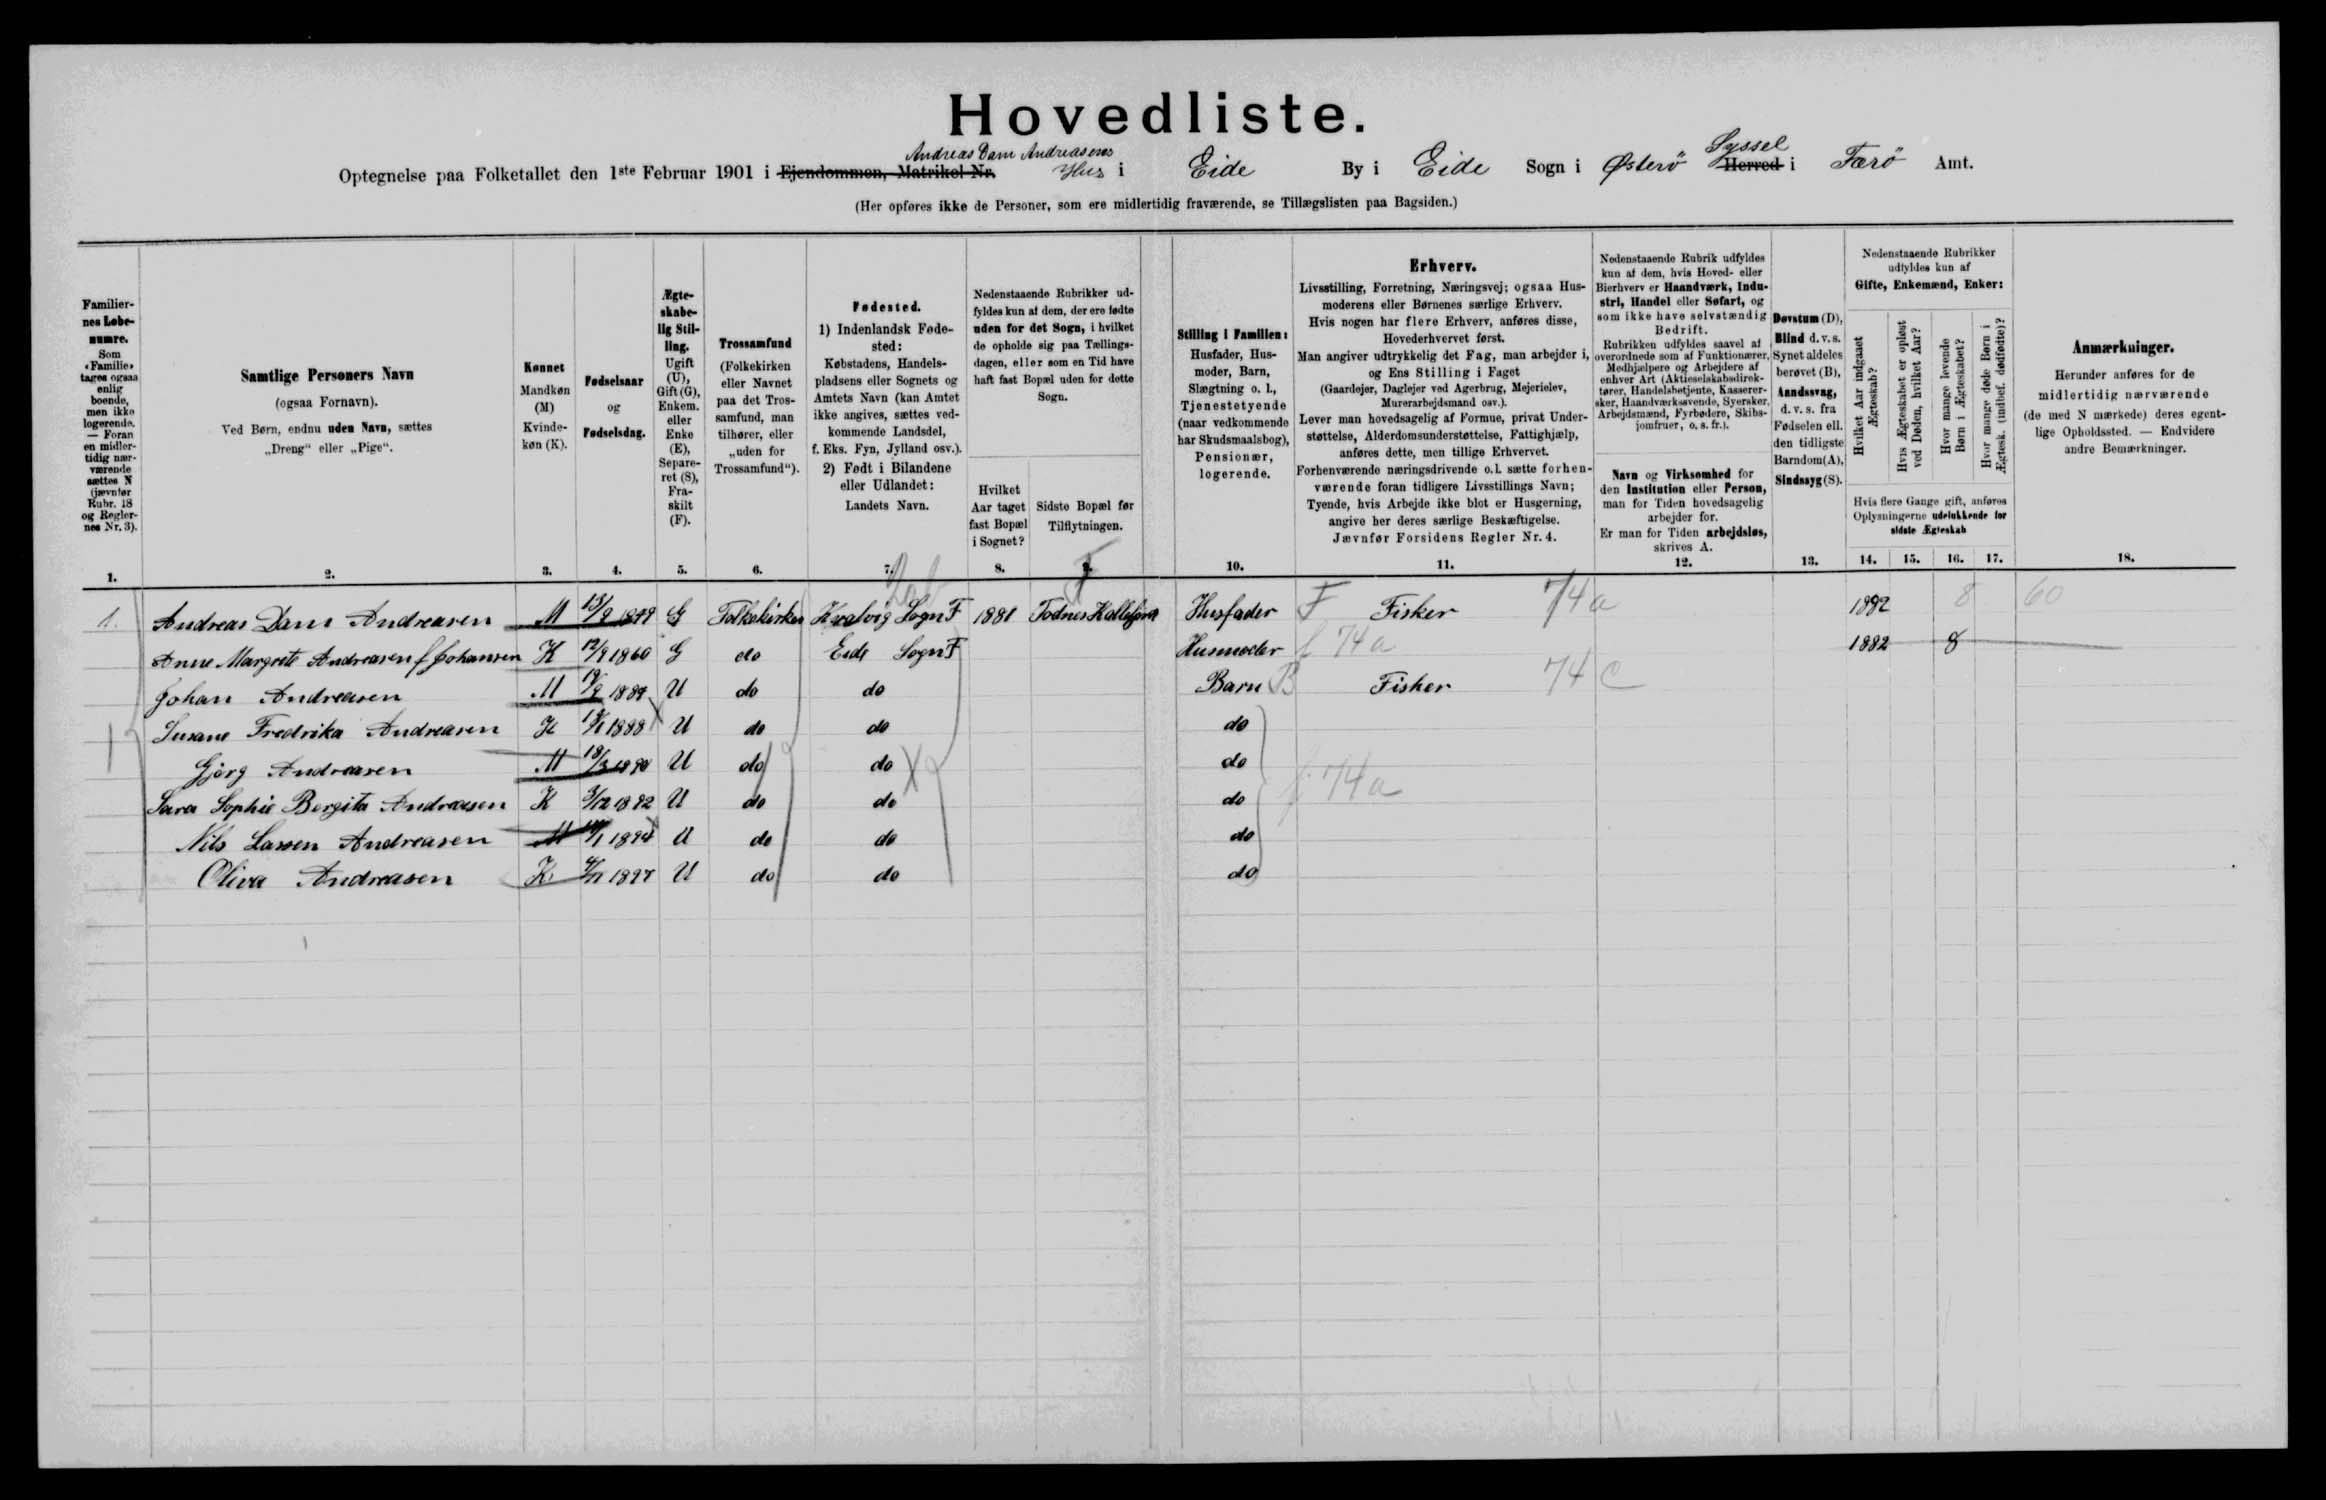 Hovedliste.
Andreas Dam Andreasens
Syssel
Optegnelse paa Folketallet den 1ste Februar 1901 i Ejendommen, Matrikel Nr. Hus i Eide By i Eide Sogn i Østerö Herred i Færö Amt.
(Her opføres ikke de Personer, som ere midlertidig fraværende, se Tillægslisten paa Bagsiden.)
Familier-
nes Løbe-
numre.
Som
«Familie»
tages ogsaa
enlig
boende,
men ikke
logerende.
— Foran
en midler-
tidig nær-
værende
sættes N
(jævnfør
Rubr. 18
og Regler-
nes Nr. 3).
1.
Samtlige Personers Navn
(ogsaa Fornavn).
Ved Børn, endnu uden Navn, sættes
„Dreng“ eller „Pige“.
2.
Kønnet
Mandkøn
(M)
Kvinde-
køn (K).
3.
Fødselsaar
og
Fødselsdag.
4.
Ægte-
skabe-
lig Stil-
ling.
Ugift
(U),
Gift (G),
Enkem.
eller
Enke
(E),
Separe-
ret (S),
Fra-
skilt
(F).
5.
Trossamfund
(Folkekirken
eller Navnet
paa det Tros-
samfund, man
tilhører, eller
„uden for
Trossamfund“).
6.
Fødested.
1) Indenlandsk Føde-
sted:
Købstadens, Handels-
pladsens eller Sognets og
Amtets Navn (kan Amtet
ikke angives, sættes ved-
kommende Landsdel,
f. Eks. Fyn, Jylland osv.).
2) Født i Bilandene
eller Udlandet:
Landets Navn.
7.
Nedenstaaende Rubrikker ud-
fyldes kun af dem, der ere fødte
uden for det Sogn, i hvilket
de opholde sig paa Tællings-
dagen, eller som en Tid have
haft fast Bopæl uden for dette
Sogn.
Hvilket
Aar taget
fast Bopæl
i Sognet?
8.
Sidste Bopæl før
Tilflytningen.
9.
Stilling i Familien:
Husfader, Hus-
moder, Barn,
Slægtning o. l.,
Tjenestetyende
(naar vedkommende
har Skudsmaalsbog),
Pensionær,
logerende.
10.
Erhverv.
Livsstilling, Forretning, Næringsvej; ogsaa Hus-
moderens eller Børnenes særlige Erhverv.
Hvis nogen har flere Erhverv, anføres disse,
Hovederhvervet først.
Man angiver udtrykkelig det Fag, man arbejder i,
og Ens Stilling i Faget
(Gaardejer, Daglejer ved Agerbrug, Mejerielev,
Murerarbejdsmand osv.).
Lever man hovedsagelig af Formue, privat Under-
støttelse, Alderdomsunderstøttelse, Fattighjælp,
anføres dette, men tillige Erhvervet.
Forhenværende næringsdrivende o.l. sætte forhen-
værende foran tidligere Livsstillings Navn;
Tyende, hvis Arbejde ikke blot er Husgerning,
angive her deres særlige Beskæftigelse.
Jævnfør Forsidens Regler Nr. 4.
11.
Nedenstaaende Rubrik udfyldes
kun af dem, hvis Hoved- eller
Bierhverv er Haandværk, Indu-
stri, Handel eller Søfart, og
som ikke have selvstændig
Bedrift.
Rubrikken udfyldes saavel af
overordnede som af Funktionærer,
Medhjælpere og Arbejdere af
enhver Art (Aktieselskabsdirek-
tører, Handelsbetjente, Kasserer-
sker, Haandværkssvende, Syersker,
Arbejdsmænd, Fyrbødere, Skibs-
jomfruer, o. s. fr.).
Navn og Virksomhed for
den Institution eller Person,
man for Tiden hovedsagelig
arbejder for.
Er man for Tiden arbejdsløs,
skrives A.
12.
Døvstum (D),
Blind d. v. s.
Synet aldeles
berøvet (B),
Aandssvag,
d. v. s. fra
Fødselen ell.
den tidligste
Barndom (A),
Sindssyg (S).
13.
Nedenstaaende Rubrikker
udfyldes kun af
Gifte, Enkemænd, Enker:
Hvilket Aar indgaaet
Ægteskab?
Hvis Ægteskabet er opløst
ved Døden, hvilket Aar?
Hvor mange levende
Børn i Ægteskabet?
Hvor mange døde Børn i
Ægtesk. (indbef. dødfødte)?
Hvis flere Gange gift, anføres
Oplysningerne udelukkende for
sidste Ægteskab
14. 15. 16. 17.
Anmærkninger.
Herunder anføres for de
midlertidig nærværende
(de med N mærkede) deres egent-
lige Opholdssted. — Endvidere
andre Bemærkninger.
18.
1. Andreas Dam Andreasen M G Folkekirken Kvalvig Sogn F 1881 Husfader F Fisker 74 a 1882 8 60
Anne Margrete Andreasen f Johansen K 12/9 1860 G do Eide Sogn F Husmoder f 74 a 1882 8
Johan Andreasen M U do do Barn B Fisker 74 C
Susane Fredrika Andreasen K 1888 U do do do
Gjørg Andreasen M 18/3 1890 U do do do f 74 a
Sara Sophie Bergita Andreasen K 1892 U do do do
Nils Lassen Andreasen M 1894 U do do do
Oliva Andreasen K 1897 U do do do